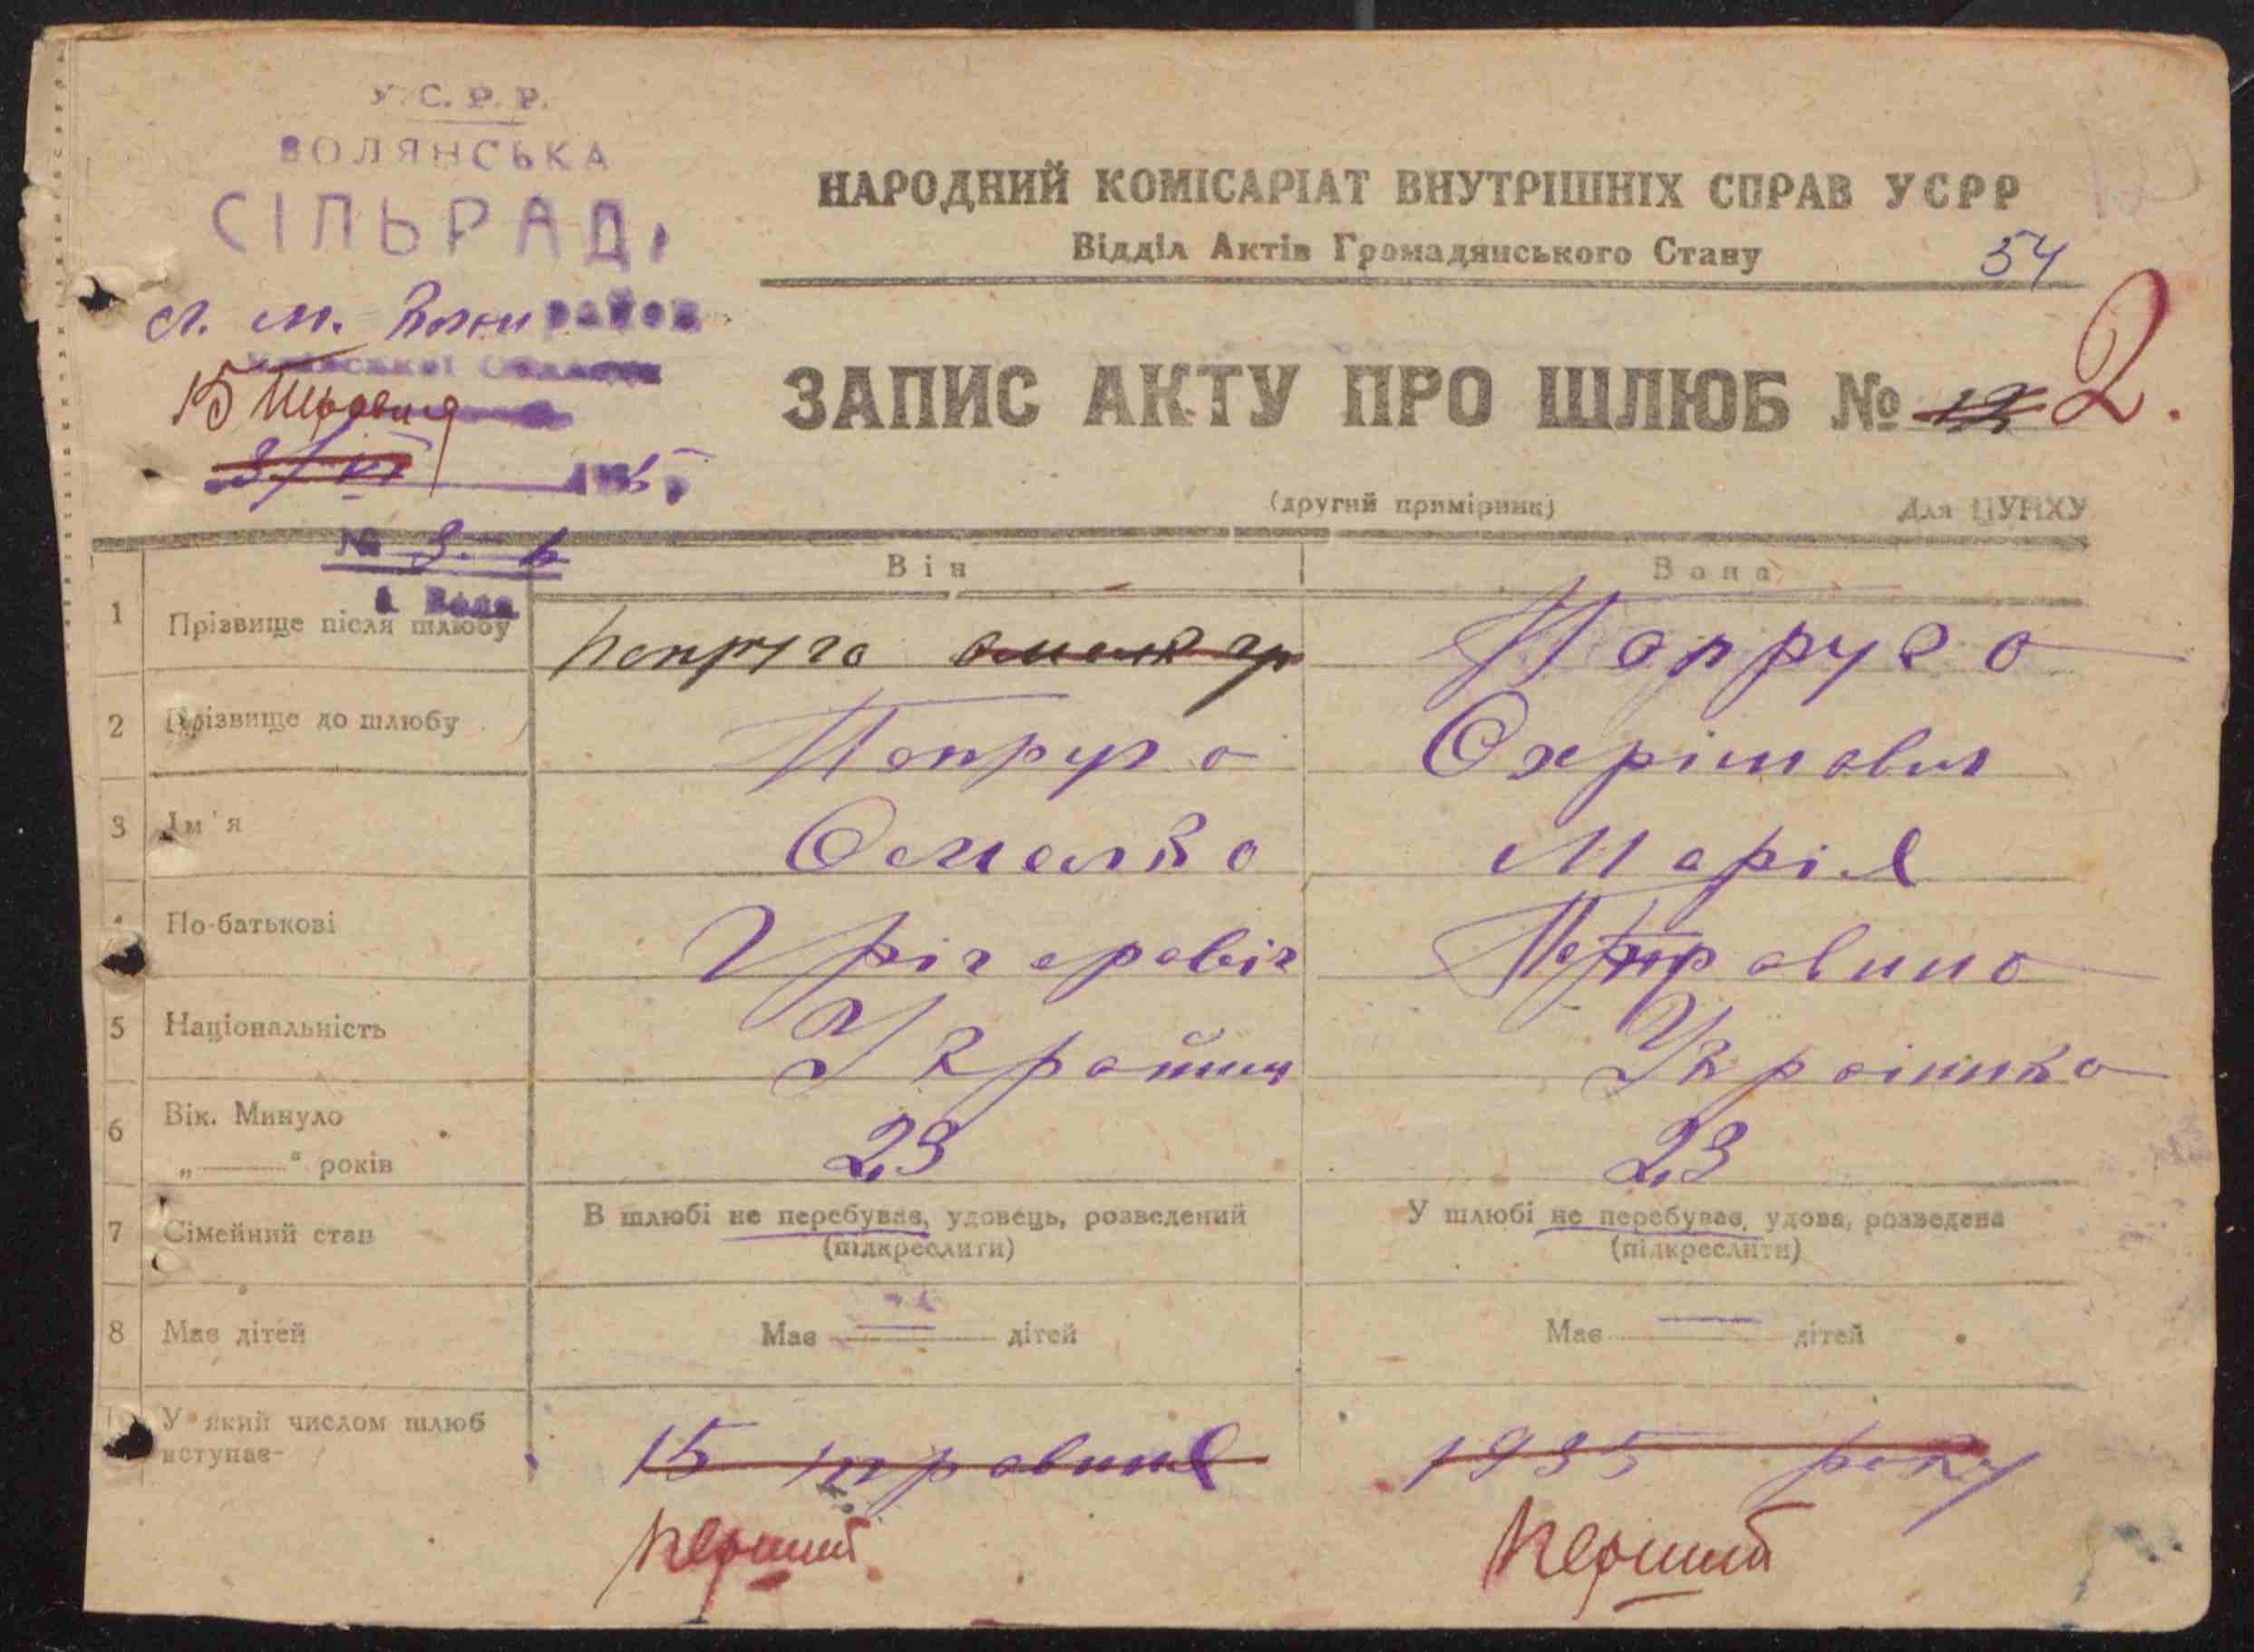 У.С.Р.Р.
ВОЛЯНСЬКА
СІЛЬРАДА
район
15 травня
3/VI 1935
№ 3.
с. Воля
НАРОДНИЙ КОМІСАРІАТ ВНУТРІШНІХ СПРАВ УСРР
Відділ Актів Громадянського Стану 54
ЗАПИС АКТУ ПРО ШЛЮБ № 12 2.
(другий примірник) Для ЦУНХУ
Він Вона
1 Прізвище після шлюбу Попруга Попруго
2 Прізвище до шлюбу Попруго Охрімович
3 Ім'я Омелко Марія
4 По-батькові Грігоровіч Петровино
5 Національність Украйниц Украінико
6 Вік. Минуло 23 23
„——" років
7 Сімейний стан В шлюбі не перебуває, удовець, розведений У шлюбі не перебуває, удова, розведена
(підкреслити) (підкреслити)
8 Має дітей Має — дітей Має — дітей
У який числом шлюб 15 травня 1935 року
вступає-
перший перший